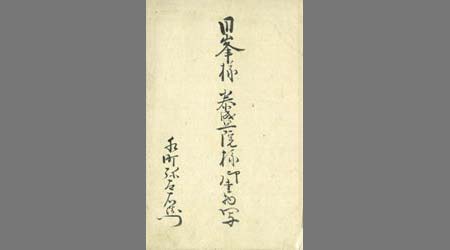 日峯様 泰盛院様 御書物写
水町弥右衛門